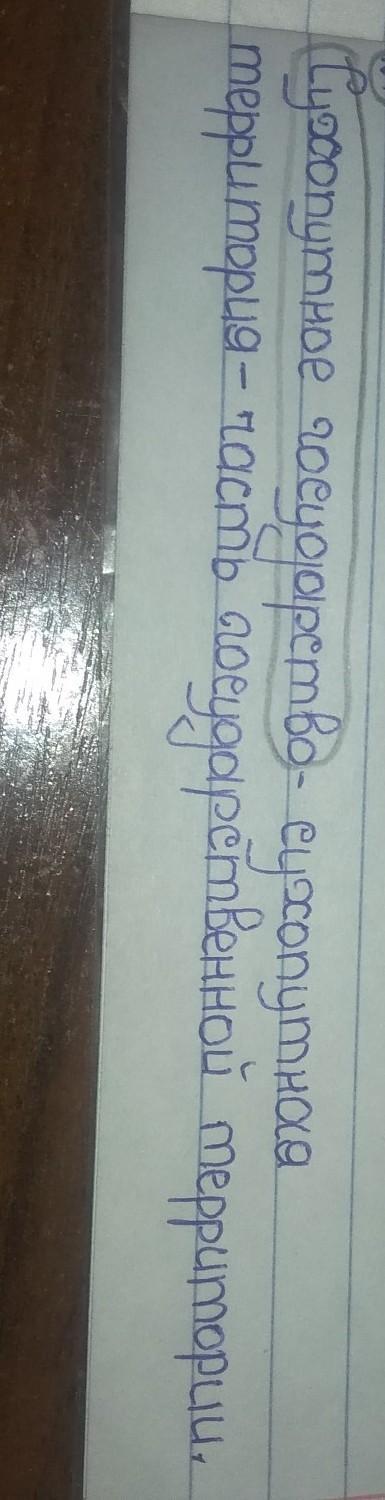 Сухопутное государство - сухопутная
территория - часть государственной территории.